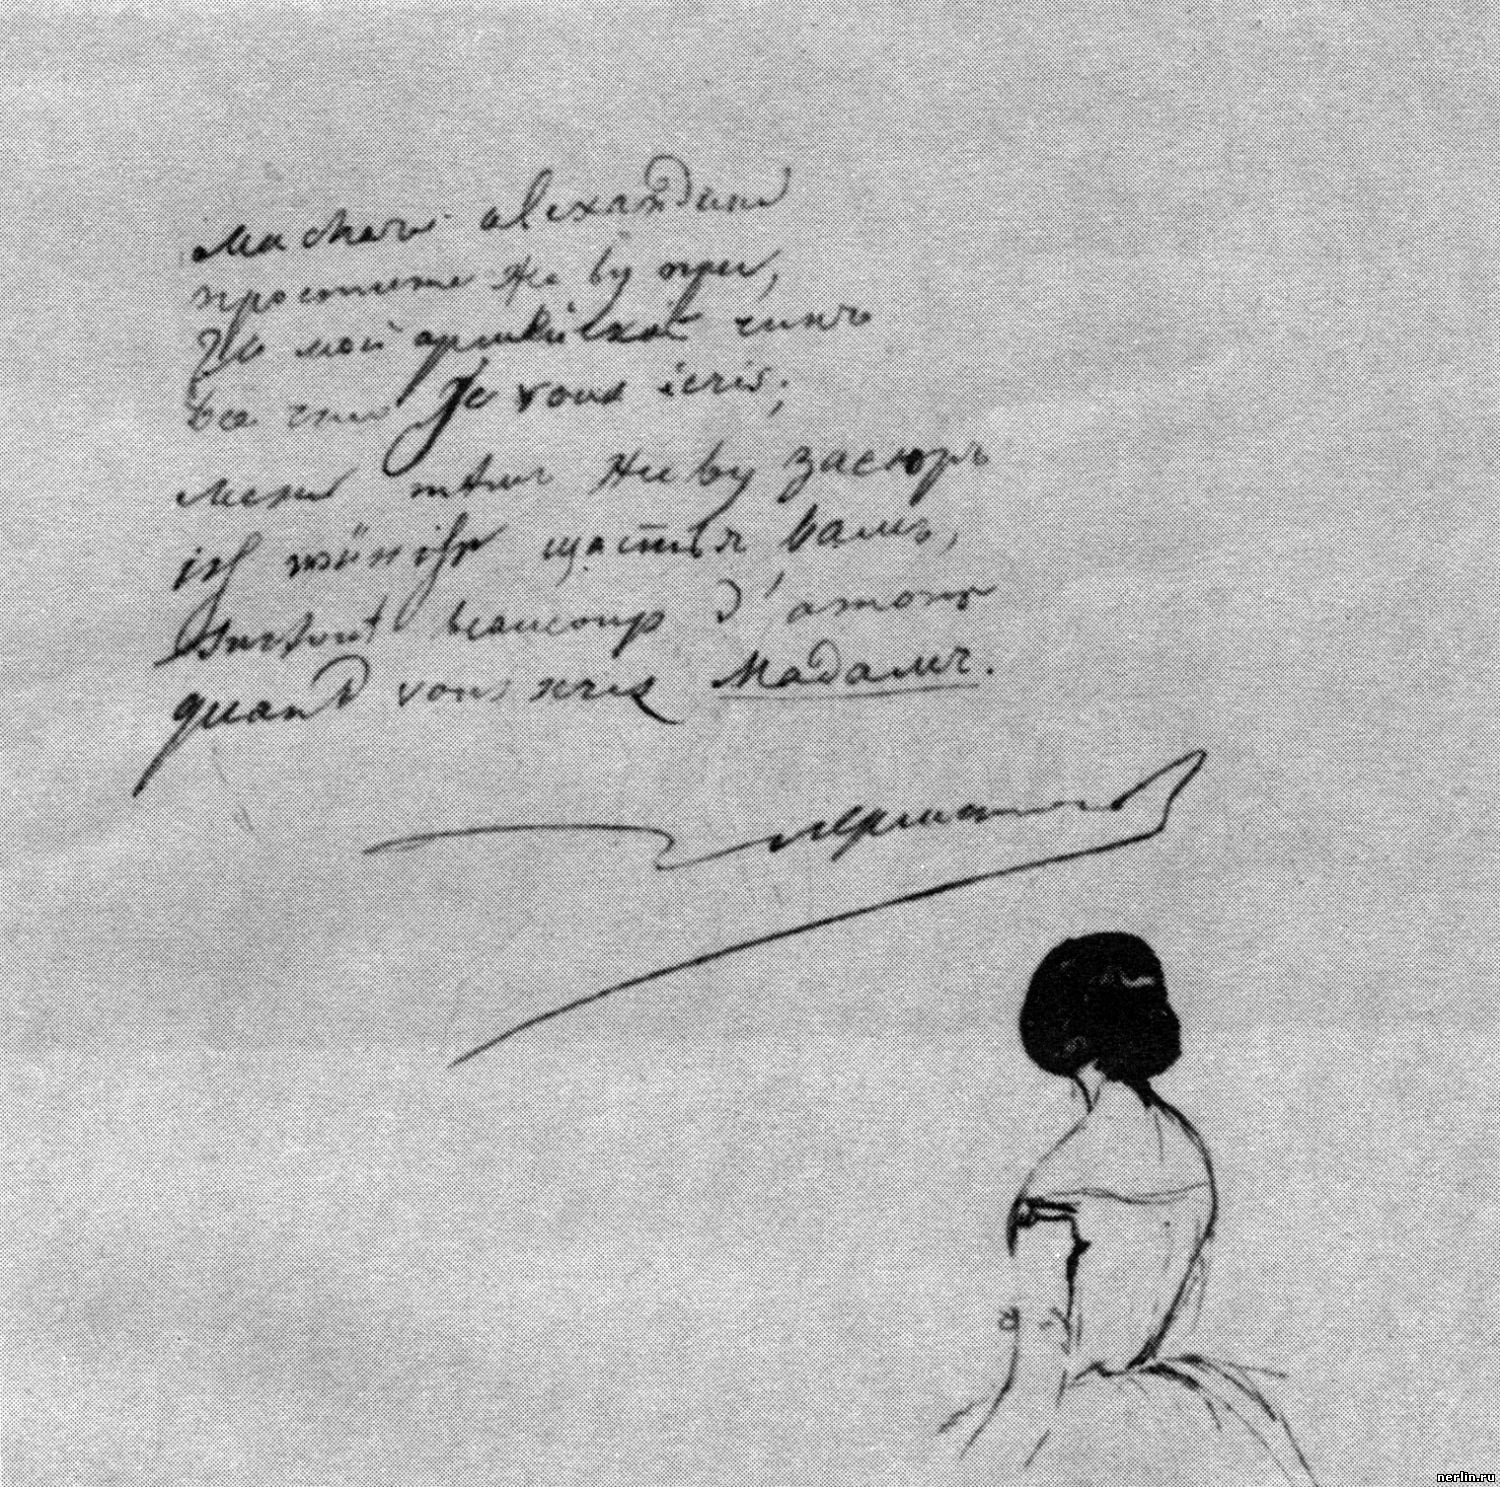 Ma chere alexandrine
простите же ву при,
За мой армейскій чинъ
все что Je vous ecris;
Межь тѣмъ же ву засюръ
ich wünsche щастья вамъ,
surtout beaucoup d'amour
quand vous serez Мадамъ.
Лермонтовъ
nerlin.ru